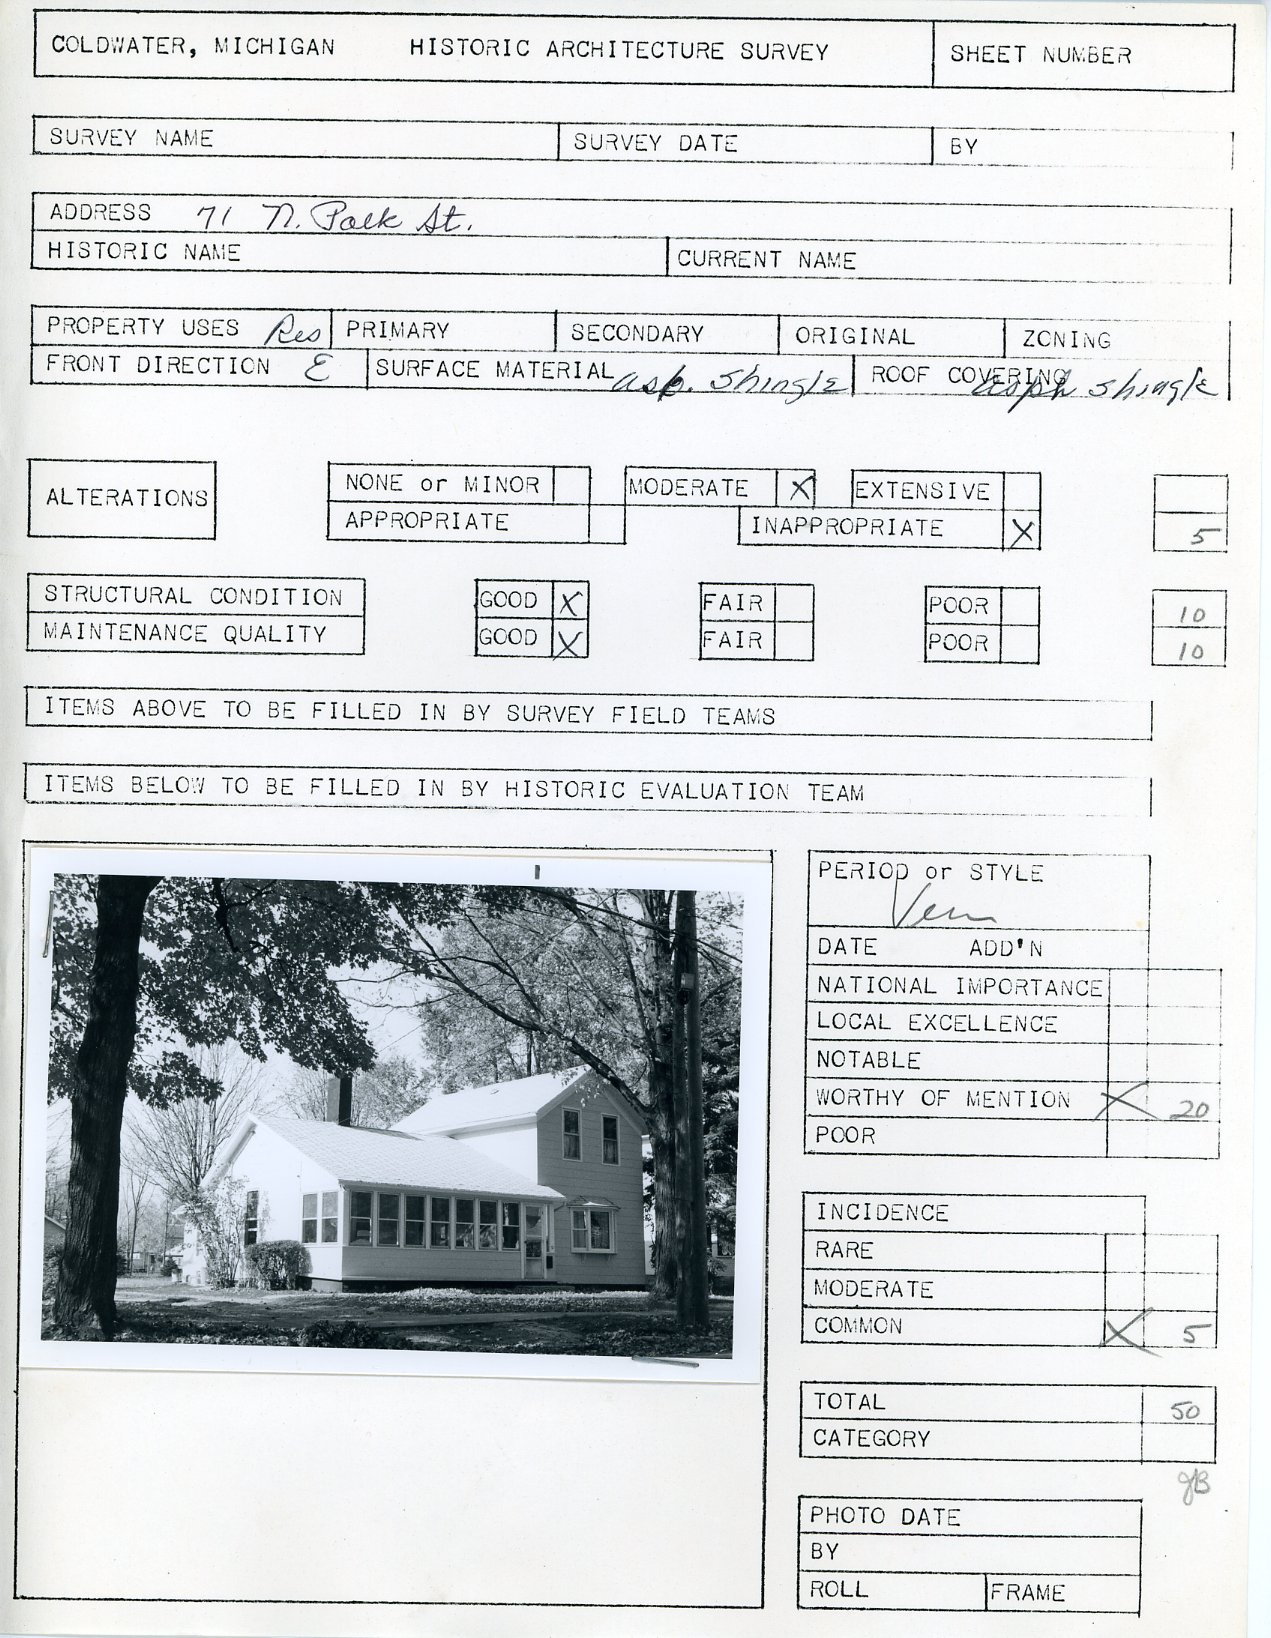 COLDWATER, MICHIGAN HISTORIC ARCHITECTURE SURVEY SHEET NUMBER
SURVEY NAME SURVEY DATE BY
ADDRESS 71 N. Polk St.
HISTORIC NAME CURRENT NAME
PROPERTY USES Res PRIMARY SECONDARY ORIGINAL ZONING
FRONT DIRECTION E SURFACE MATERIAL asb. shingle ROOF COVERING asph shingle
ALTERATIONS NONE or MINOR MODERATE X EXTENSIVE
APPROPRIATE INAPPROPRIATE X 5
STRUCTURAL CONDITION GOOD X FAIR POOR 10
MAINTENANCE QUALITY GOOD X FAIR POOR 10
ITEMS ABOVE TO BE FILLED IN BY SURVEY FIELD TEAMS
ITEMS BELOW TO BE FILLED IN BY HISTORIC EVALUATION TEAM
PERIOD or STYLE
Vern
DATE ADD'N
NATIONAL IMPORTANCE
LOCAL EXCELLENCE
NOTABLE
WORTHY OF MENTION X 20
POOR
INCIDENCE
RARE
MODERATE
COMMON X 5
TOTAL 50
CATEGORY
JB
PHOTO DATE
BY
ROLL FRAME